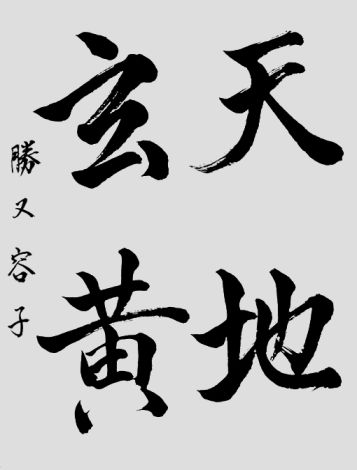 天地
玄黄
勝又容子